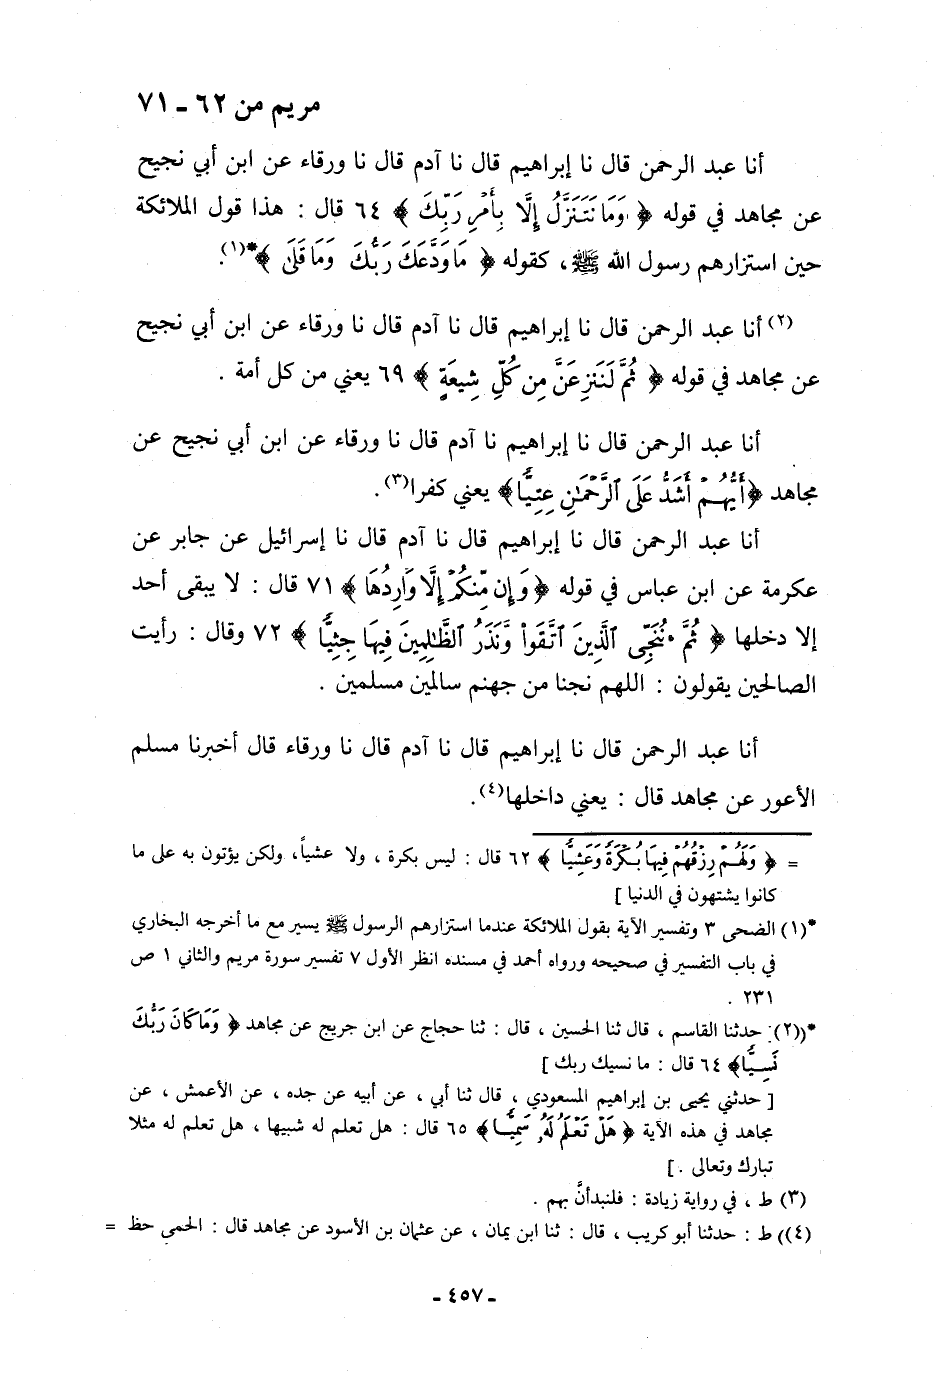 مريم من ٦٢ ـ ٧١
أنا عبد الرحمن قال نا إبراهيم قال نا آدم قال نا ورقاء عن ابن أبي نجيح
عن مجاهد في قوله ﴿ وَمَا نَتَنَزَّلُ إِلَّا بِأَمْرِ رَبِّكَ ﴾ ٦٤ قال : هذا قول الملائكة
حين استزارهم رسول الله ﷺ ، كقوله ﴿ مَا وَدَّعَكَ رَبُّكَ وَمَا قَلَىٰ ﴾*(١).
(٢) أنا عبد الرحمن قال نا إبراهيم قال نا آدم قال نا ورقاء عن ابن أبي نجيح
عن مجاهد في قوله ﴿ ثُمَّ لَنَنزِعَنَّ مِن كُلِّ شِيعَةٍ ﴾ ٦٩ يعني من كل أمة .
أنا عبد الرحمن قال نا إبراهيم نا آدم قال نا ورقاء عن ابن أبي نجيح عن
مجاهد ﴿أَيُّهُمْ أَشَدُّ عَلَى ٱلرَّحْمَٰنِ عِتِيًّا﴾ يعني كفرا(٣).
أنا عبد الرحمن قال نا إبراهيم قال نا آدم قال نا إسرائيل عن جابر عن
عكرمة عن ابن عباس في قوله ﴿وَإِن مِّنكُمْ إِلَّا وَارِدُهَا ﴾ ٧١ قال : لا يبقى أحد
إلا دخلها ﴿ ثُمَّ نُنَجِّى ٱلَّذِينَ ٱتَّقَوا۟ وَّنَذَرُ ٱلظَّٰلِمِينَ فِيهَا جِثِيًّا ﴾ ٧٢ وقال : رأيت
الصالحين يقولون : اللهم نجنا من جهنم سالمين مسلمين .
أنا عبد الرحمن قال نا إبراهيم قال نا آدم قال نا ورقاء قال أخبرنا مسلم
الأعور عن مجاهد قال : يعني داخلها(٤).
= ﴿ وَلَهُمْ رِزْقُهُمْ فِيهَا بُكْرَةً وَعَشِيًّا ﴾ ٦٢ قال : ليس بكرة ، ولا عشياً، ولكن يؤتون به على ما
كانوا يشتهون في الدنيا ]
*(١) الضحى ٣ وتفسير الآية بقول الملائكة عندما استزارهم الرسول ﷺ يسير مع ما أخرجه البخاري
في باب التفسير في صحيحه ورواه أحمد في مسنده انظر الأول ٧ تفسير سورة مريم والثاني ١ ص
٢٣١ .
*((٢): حدثنا القاسم ، قال ثنا الحسين ، قال : ثنا حجاج عن ابن جريج عن مجاهد ﴿ وَمَا كَانَ رَبُّكَ
نَسِيًّا﴾ ٦٤ قال : ما نسيك ربك ]
[ حدثني يحيى بن إبراهيم المسعودي ، قال ثنا أبي ، عن أبيه عن جده ، عن الأعمش ، عن
مجاهد في هذه الآية ﴿ هَلْ تَعْلَمُ لَهُۥ سَمِيًّا﴾ ٦٥ قال : هل تعلم له شبيها ، هل تعلم له مثلا
تبارك وتعالى . ]
(٣) ط ، في رواية زيادة : فلنبدأنَّ بهم .
(٤)) ط : حدثنا أبو كريب ، قال : ثنا ابن يمان ، عن عثمان بن الأسود عن مجاهد قال : الحمى حظ =
ـ ٤٥٧ ـ